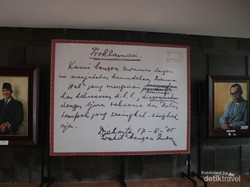 Proklamasi
Kami bangsa Indonesia dengan
ini menyatakan kemerdekaan Indonesia
Hal² yang mengenai
d.l.l., diselenggarakan
dengan tjara saksama dan dalam
tempoh jang sesingkat-singkat-
nja.
Djakarta, 17-8-'05
Wakil² bangsa Indonesia
detiktravel